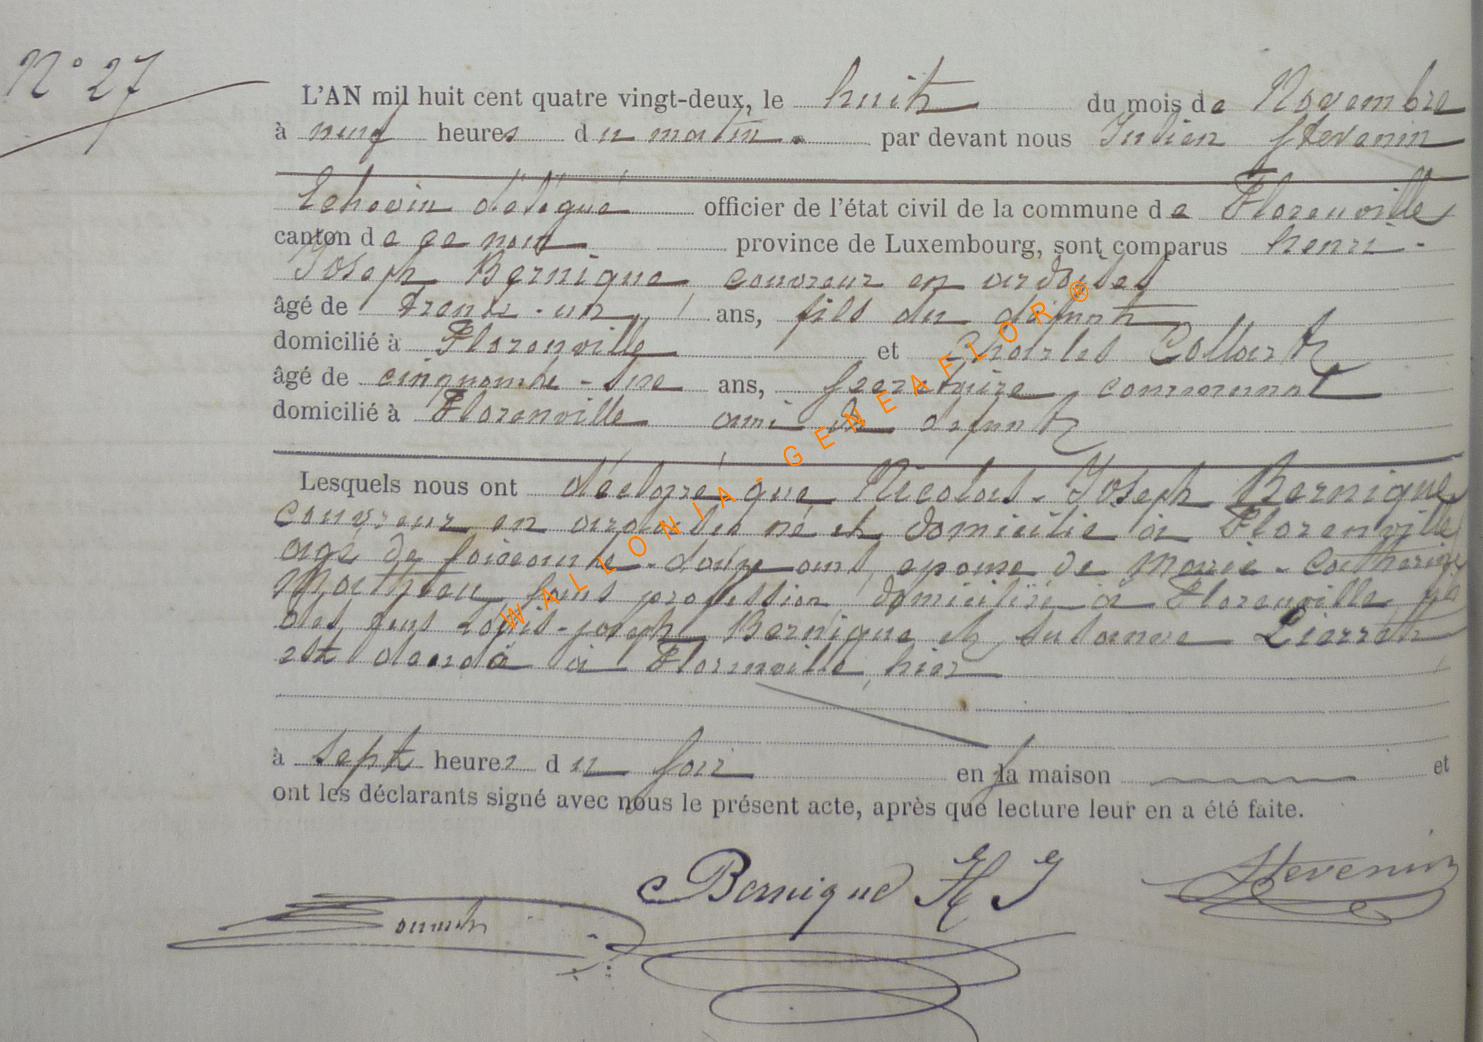 N° 27
L'AN mil huit cent quatre vingt-deux, le huit du mois de Novembre
à neuf heures du matin. par devant nous Julien Stevenin
Echevin délégué officier de l'état civil de la commune de Florenville
canton de ce nom province de Luxembourg, sont comparus henri-
Joseph Bernique, couvreur en ardoises
âgé de trente-un, ans, fils du défunt
domicilié à Florenville et Charles Collart
âgé de cinquante-six ans, secrétaire communal
domicilié à Florenville ami du défunt
Lesquels nous ont déclaré que Nicolas-Joseph Bernique
couvreur en ardoises né et domicilié à Florenville
agé de soixante-douze ans, epoux de Marie-Catherine
sans profession, domiciliée à Florenville, fils
des feus Louis-joseph Bernique et Susanne Pierret
est decedé à Florenville, hier
à sept heures du soir en sa maison et
ont les déclarants signé avec nous le présent acte, après que lecture leur en a été faite.
Bernique H J
Stevenin
WALLONIA-GENEAFLOR®